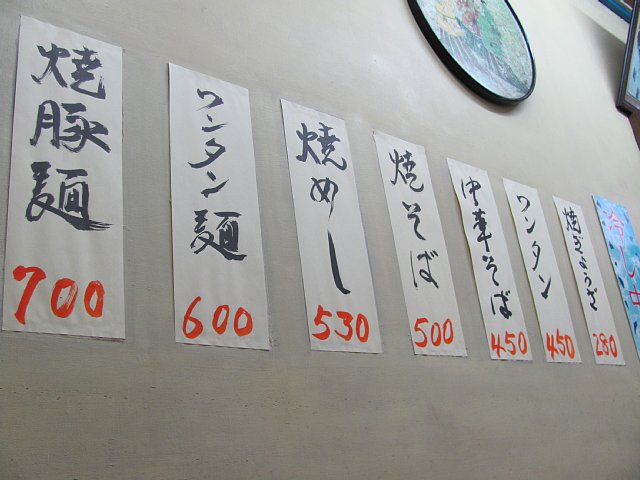 焼豚麺
700
ワンタン麺
600
焼めし
530
焼そば
500
中華そば
450
ワンタン
450
焼ぎょうざ
280
冷し中